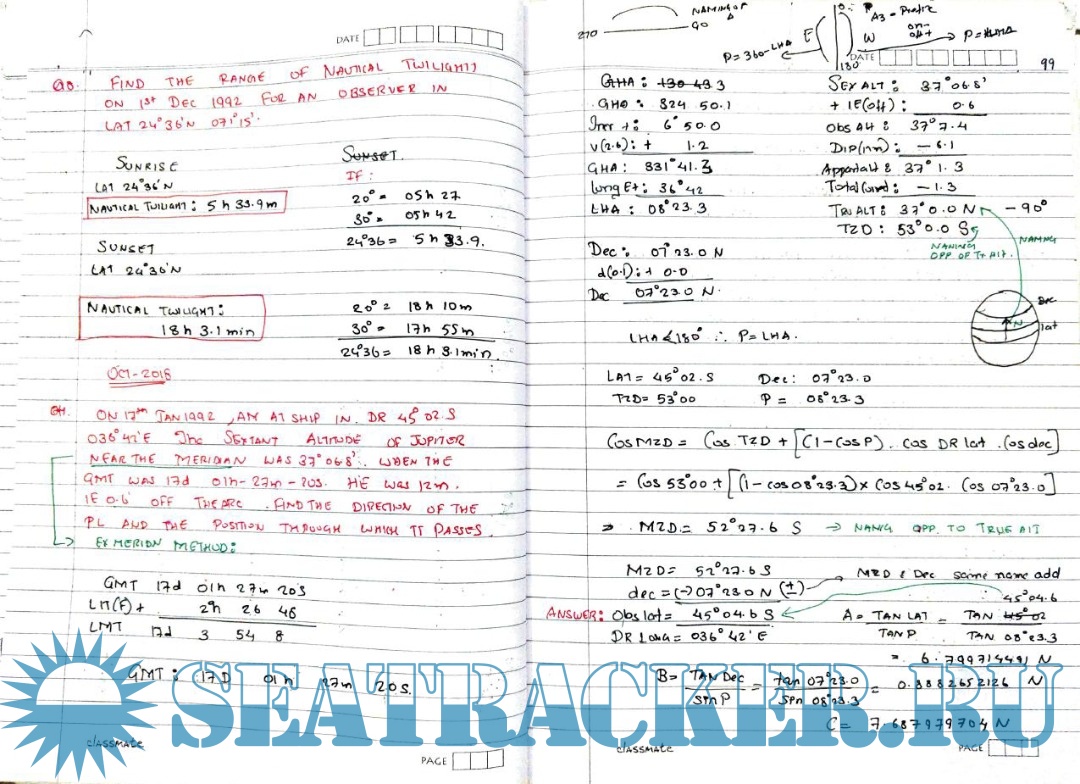 DATE
Q8. FIND THE RANGE OF NAUTICAL TWILIGHTS
ON 1st DEC 1992 FOR AN OBSERVER IN
LAT 24°36'N 071°15'
SUNRISE
LAT 24°36'N
NAUTICAL TWILIGHT: 5h 33.9m
SUNSET
LAT 24°36'N
NAUTICAL TWILIGHT:
18h 3.1min
SUNSET.
IF:
20° = 05h 27
30° = 05h 42
24°36 = 5h 33.9.
20° = 18h 10m
30° = 17h 55m
24°36 = 18h 3.1min.
OCT-2018
ON 17th JAN 1992, AM AT SHIP IN DR 45° 02.S
036°42'E The SEXTANT ALTITUDE OF JUPITER
NEAR THE MERIDIAN WAS 37°06.8'. WHEN THE
GMT WAS 17d 01h-27m-20s. HE was 12m.
IE 0.6' OFF THE ARC. FIND THE DIRECTION OF THE
PL AND THE POSITION THROUGH WHICH IT PASSES.
EX MERIDN METHOD:
GMT 17d 01h 27m 20s
LIT(E)+ 2h 26 48
LMT 17d 3 54 8
GMT: 17D 01h 27m 20s.
classmate
PAGE
270
NAMING OF
90
P=360-LHA
E
0
180
W
A3 = Prefix
on-
off+
DATE
99
GHA: 130 43.3
GHA: 324 50.1
Incr+: 6° 50.0
V(2.6): + 1.2
GHA: 331°41.3
Long E+: 36°42
LHA: 08°23.3
Dec: 07°23.0 N
d(0.1): + 0.0
Dec 07°23.0 N.
SEXT ALT: 37°06.8'
+ IE(off): 0.6
Obs Alt: 37°7.4
DIP(12m): - 6.1
Apparent alt: 37°1.3
Total Corrn: - 1.3
TRU ALT: 37°0.0 N - 90°
TZD: 53°0.0 S
NAMING
OPP OF T. Alt.
NAMNG
Dec
N
lat
LHA < 180° ∴ P=LHA.
LAT = 45°02.S Dec: 07°23.0
TZD = 53°00 P = 08°23.3
Cos MZD = Cos TZD + [(1-cosP). cos DR lat .Cos dec]
= Cos 53°00 + [(1-cos 08°23.3) x Cos 45°02. Cos 07°23.0]
⇒ MZD = 52°27.6 S → NAMNG OPP. TO TRUE AIT
MZD = 52°27.6 S
dec = (-) 07°23.0 N (±)
MZD & Dec same name add
ANSWER: Obs lat = 45°04.6 S
DR LONG = 036°42'E
45°04.6
A = TAN LAT = TAN 45°02
TAN P TAN 08°23.3
= 6.799714491 N
B = TAN Dec = tan 07°23.0 = 0.8882652126 N
sin P sin 08°23.3
C = 7.687979704 N
SEATRACKER.RU
classmate
PAGE